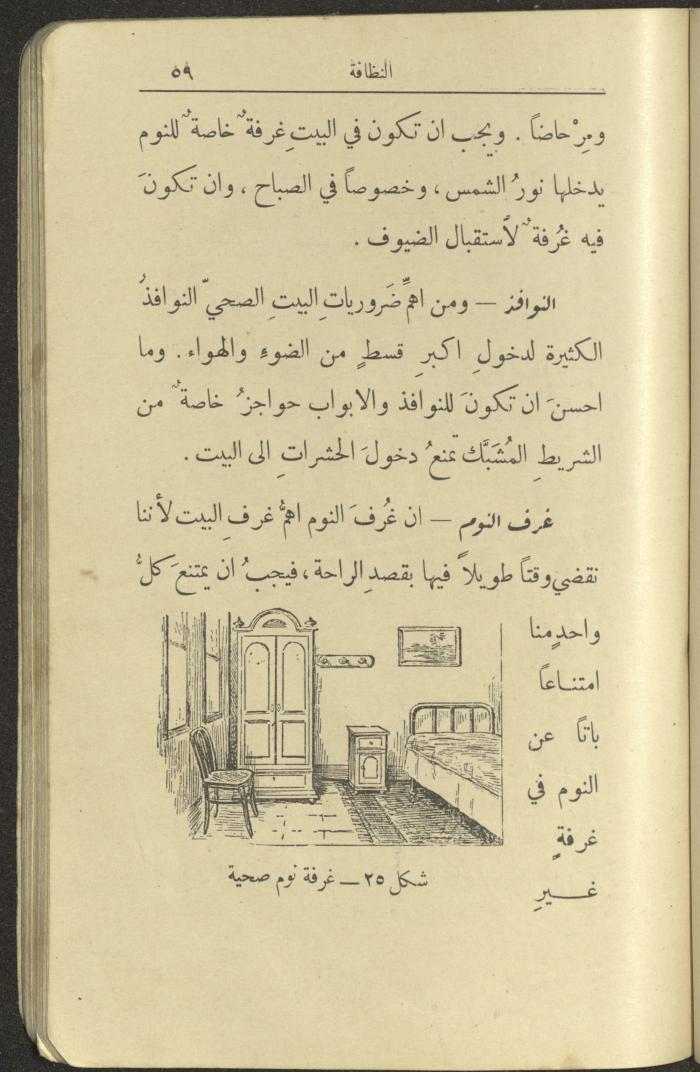 النظافة ٥٩
ومِرْحاضاً . ويجب ان تكون في البيتِ غرفةٌ خاصةٌ للنوم
يدخلها نورُ الشمس ، وخصوصاً في الصباح ، وان تكونَ
فيه غُرفةٌ لأستقبال الضيوف .
النوافذ — ومن اهمِّ ضَرورياتِ البيتِ الصحيّ النوافذُ
الكثيرة لدخولِ اكبرِ قسطٍ من الضوءِ والهواء . وما
احسنَ ان تكونَ للنوافذ والابواب حواجزُ خاصةٌ من
الشريطِ المُشَبَّك تمنعُ دخولَ الحشراتِ الى البيت .
غرف النوم — ان غُرفَ النوم اهمُّ غرفِ البيت لأننا
نقضي وقتاً طويلاً فيها بقصدِ الراحة ، فيجبُ ان يمتنعَ كلُّ
واحدٍ منا
امتناعاً
باتاً عن
النوم في
غرفةٍ
غيرِ
شكل ٢٥ — غرفة نوم صحية